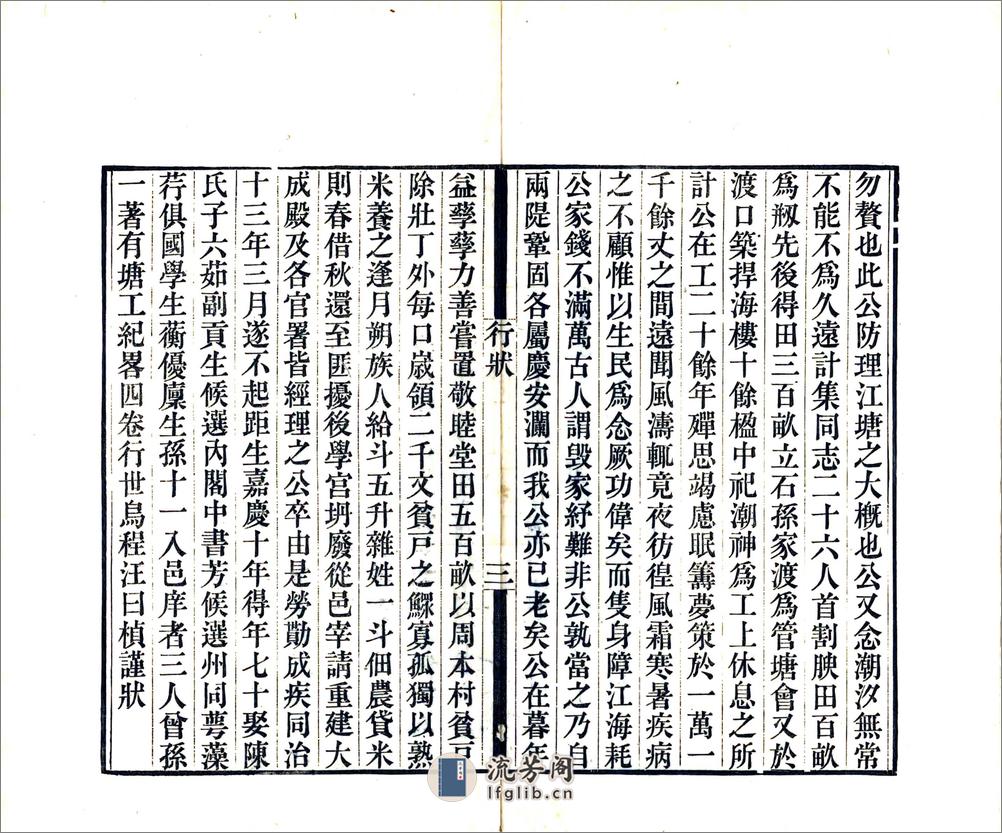 勿贅也此公防理江塘之大概也公又念潮汐無常
不能不爲久遠計集同志二十六人首割腴田百畝
爲剏先後得田三百畝立石孫家渡爲管塘會又於
渡口築捍海樓十餘楹中祀潮神爲工上休息之所
計公在工二十餘年殫思竭慮眠籌夢策於一萬一
千餘丈之間遠聞風濤輒竟夜彷徨風霜寒暑疾病
之不顧惟以生民爲念厥功偉矣而隻身障江海耗
公家錢不滿萬古人謂毁家紓難非公孰當之乃自
兩隄鞏固各屬慶安瀾而我公亦已老矣公在暮年
行狀
三
益孳孳力善嘗置敬睦堂田五百畝以周本村貧戸
除壯丁外每口嵗領二千文貧戸之鰥寡孤獨以熟
米養之逢月朔族人給斗五升雜姓一斗佃農貸米
則春借秋還至匪擾後學宫坍廢從邑宰請重建大
成殿及各官署皆經理之公卒由是勞勩成疾同治
十三年三月遂不起距生嘉慶十年得年七十娶陳
氏子六茹副貢生候選内閣中書芳候選州同蕚藻
荇俱國學生蘅優廩生孫十一入邑庠者三人曾孫
一著有塘工紀畧四卷行世烏程汪曰楨謹狀
流芳阁
lfglib.cn